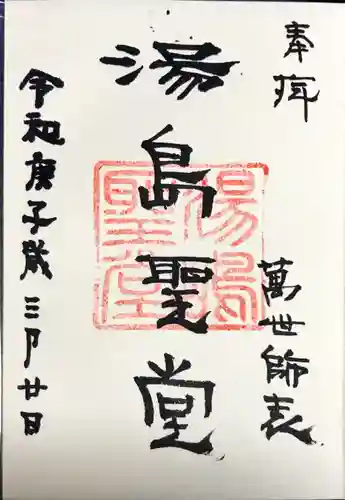 奉拜
萬世師表
湯島聖堂
湯島聖堂
令和庚子歳三月廿日